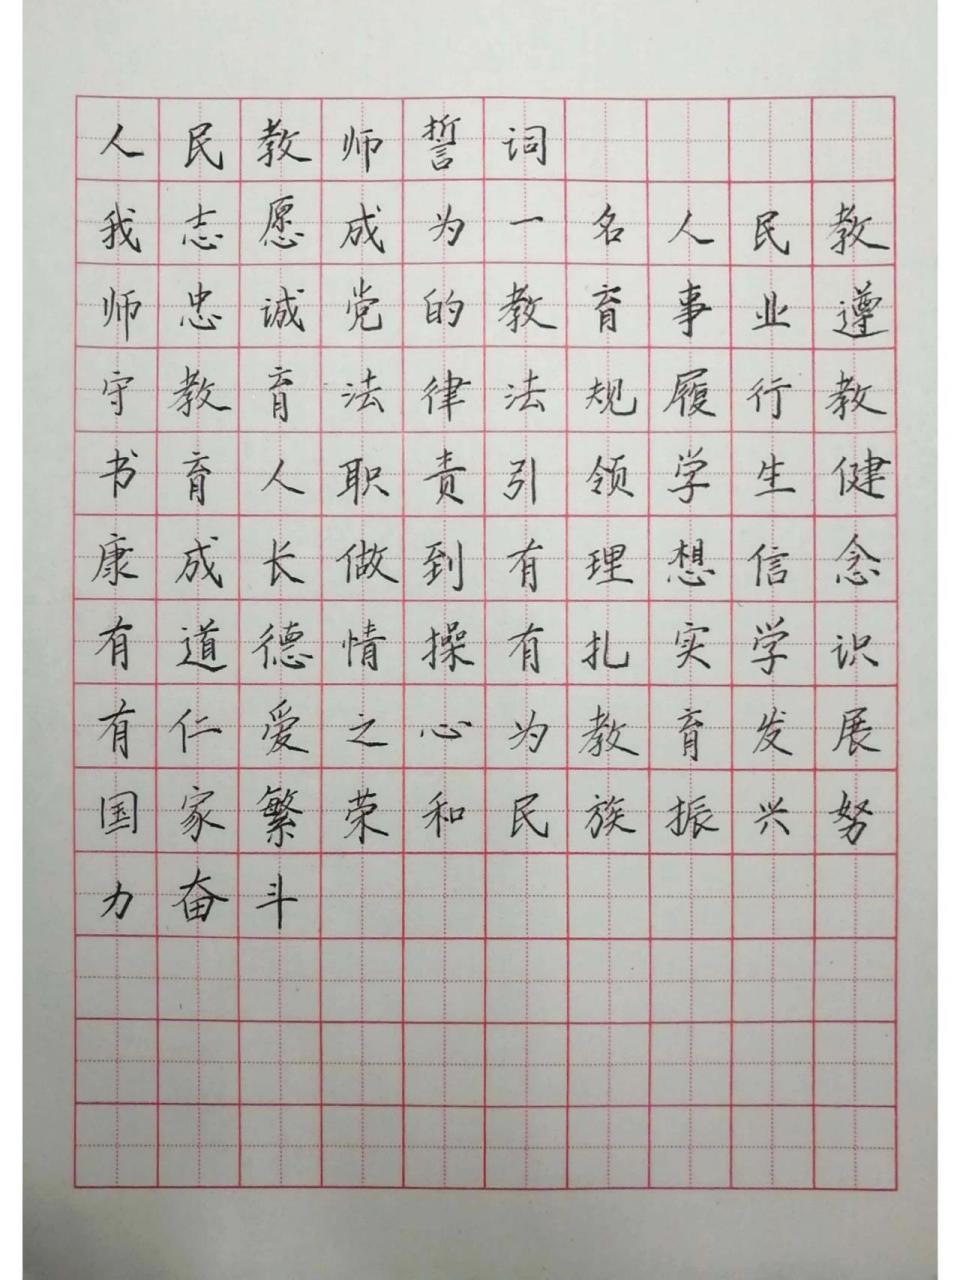 人民教师誓词
我志愿成为一名人民教
师忠诚党的教育事业遵
守教育法律法规履行教
书育人职责引领学生健
康成长做到有理想信念
有道德情操有扎实学识
有仁爱之心为教育发展
国家繁荣和民族振兴努
力奋斗